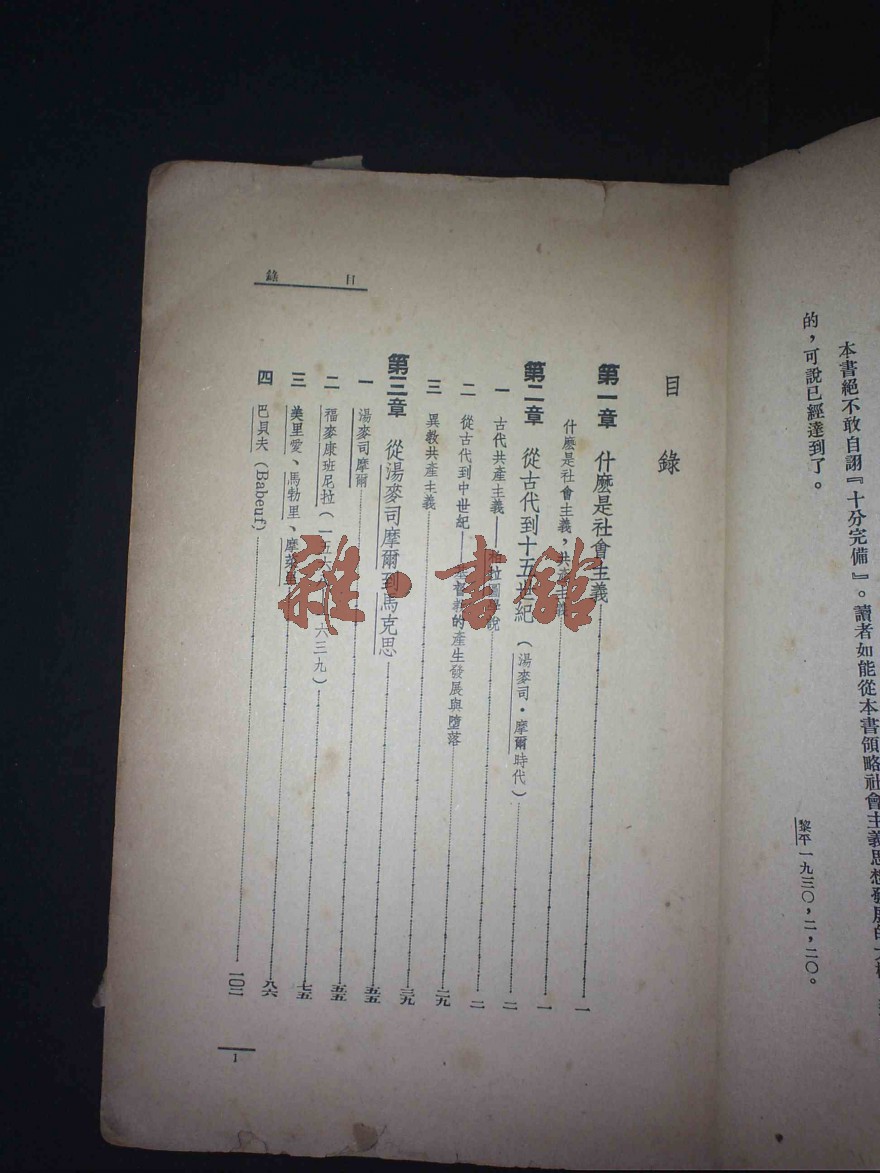 本書絕不敢自詡『十分完備』。讀者如能從本書領略社會主義思想發展的
的，可說已經達到了。
黎平一九三〇，二，二〇。
目錄
目錄
第一章 什麼是社會主義 一
什麼是社會主義，共產主義 一
第二章 從古代到十五世紀（湯麥司·摩爾時代） 二
一 古代共產主義——柏拉圖學說 二
二 從古代到中世紀——基督教的產生發展與墮落 二九
三 異教共產主義 三九
第三章 從湯麥司摩爾到馬克思 五五
一 湯麥司摩爾 五五
二 福麥康班尼拉（一五六 六三九） 七五
三 美里愛、馬勃里、摩萊里 八六
四 巴貝夫（Babeuf） 一〇二
1
雜·書館